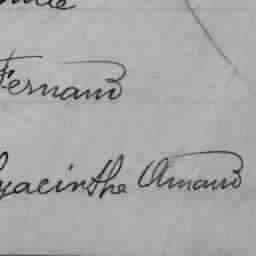 Fernand
Hyacinthe Amand